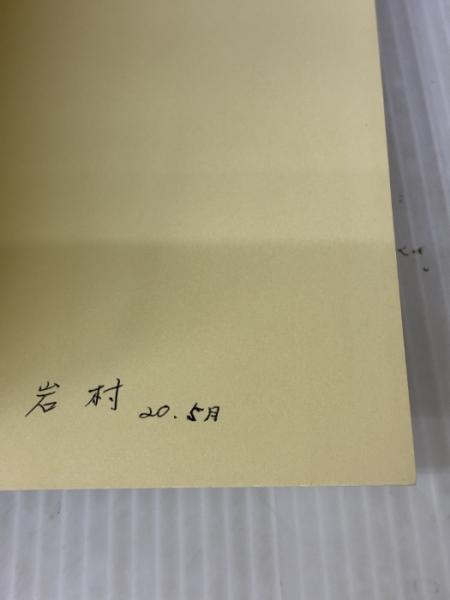 岩村 20.5月